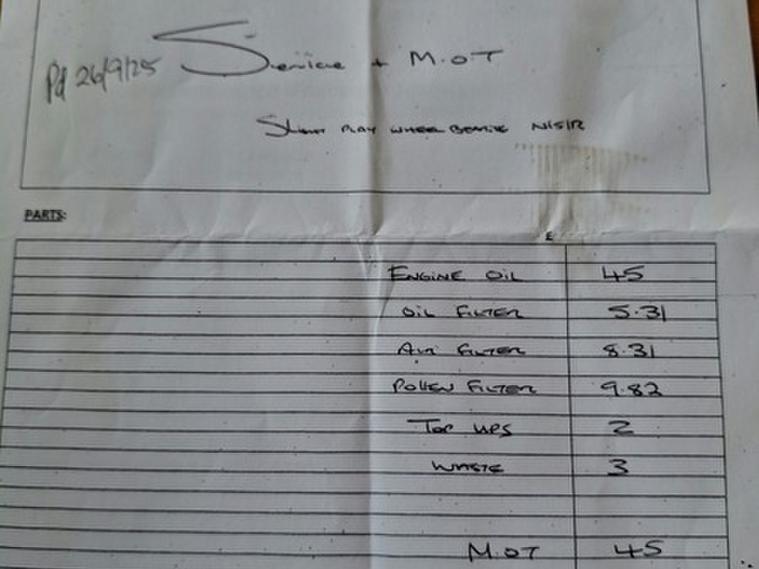 Pd 26/9/25 Service + M.O.T
Slight PLAY WHEEL BEARING N/S/R
PARTS:
£
ENGINE OIL 45
OIL FILTER 5.31
AIR FILTER 8.31
POLLEN FILTER 9.82
TOP UPS 2
WASTE 3
M.OT 45